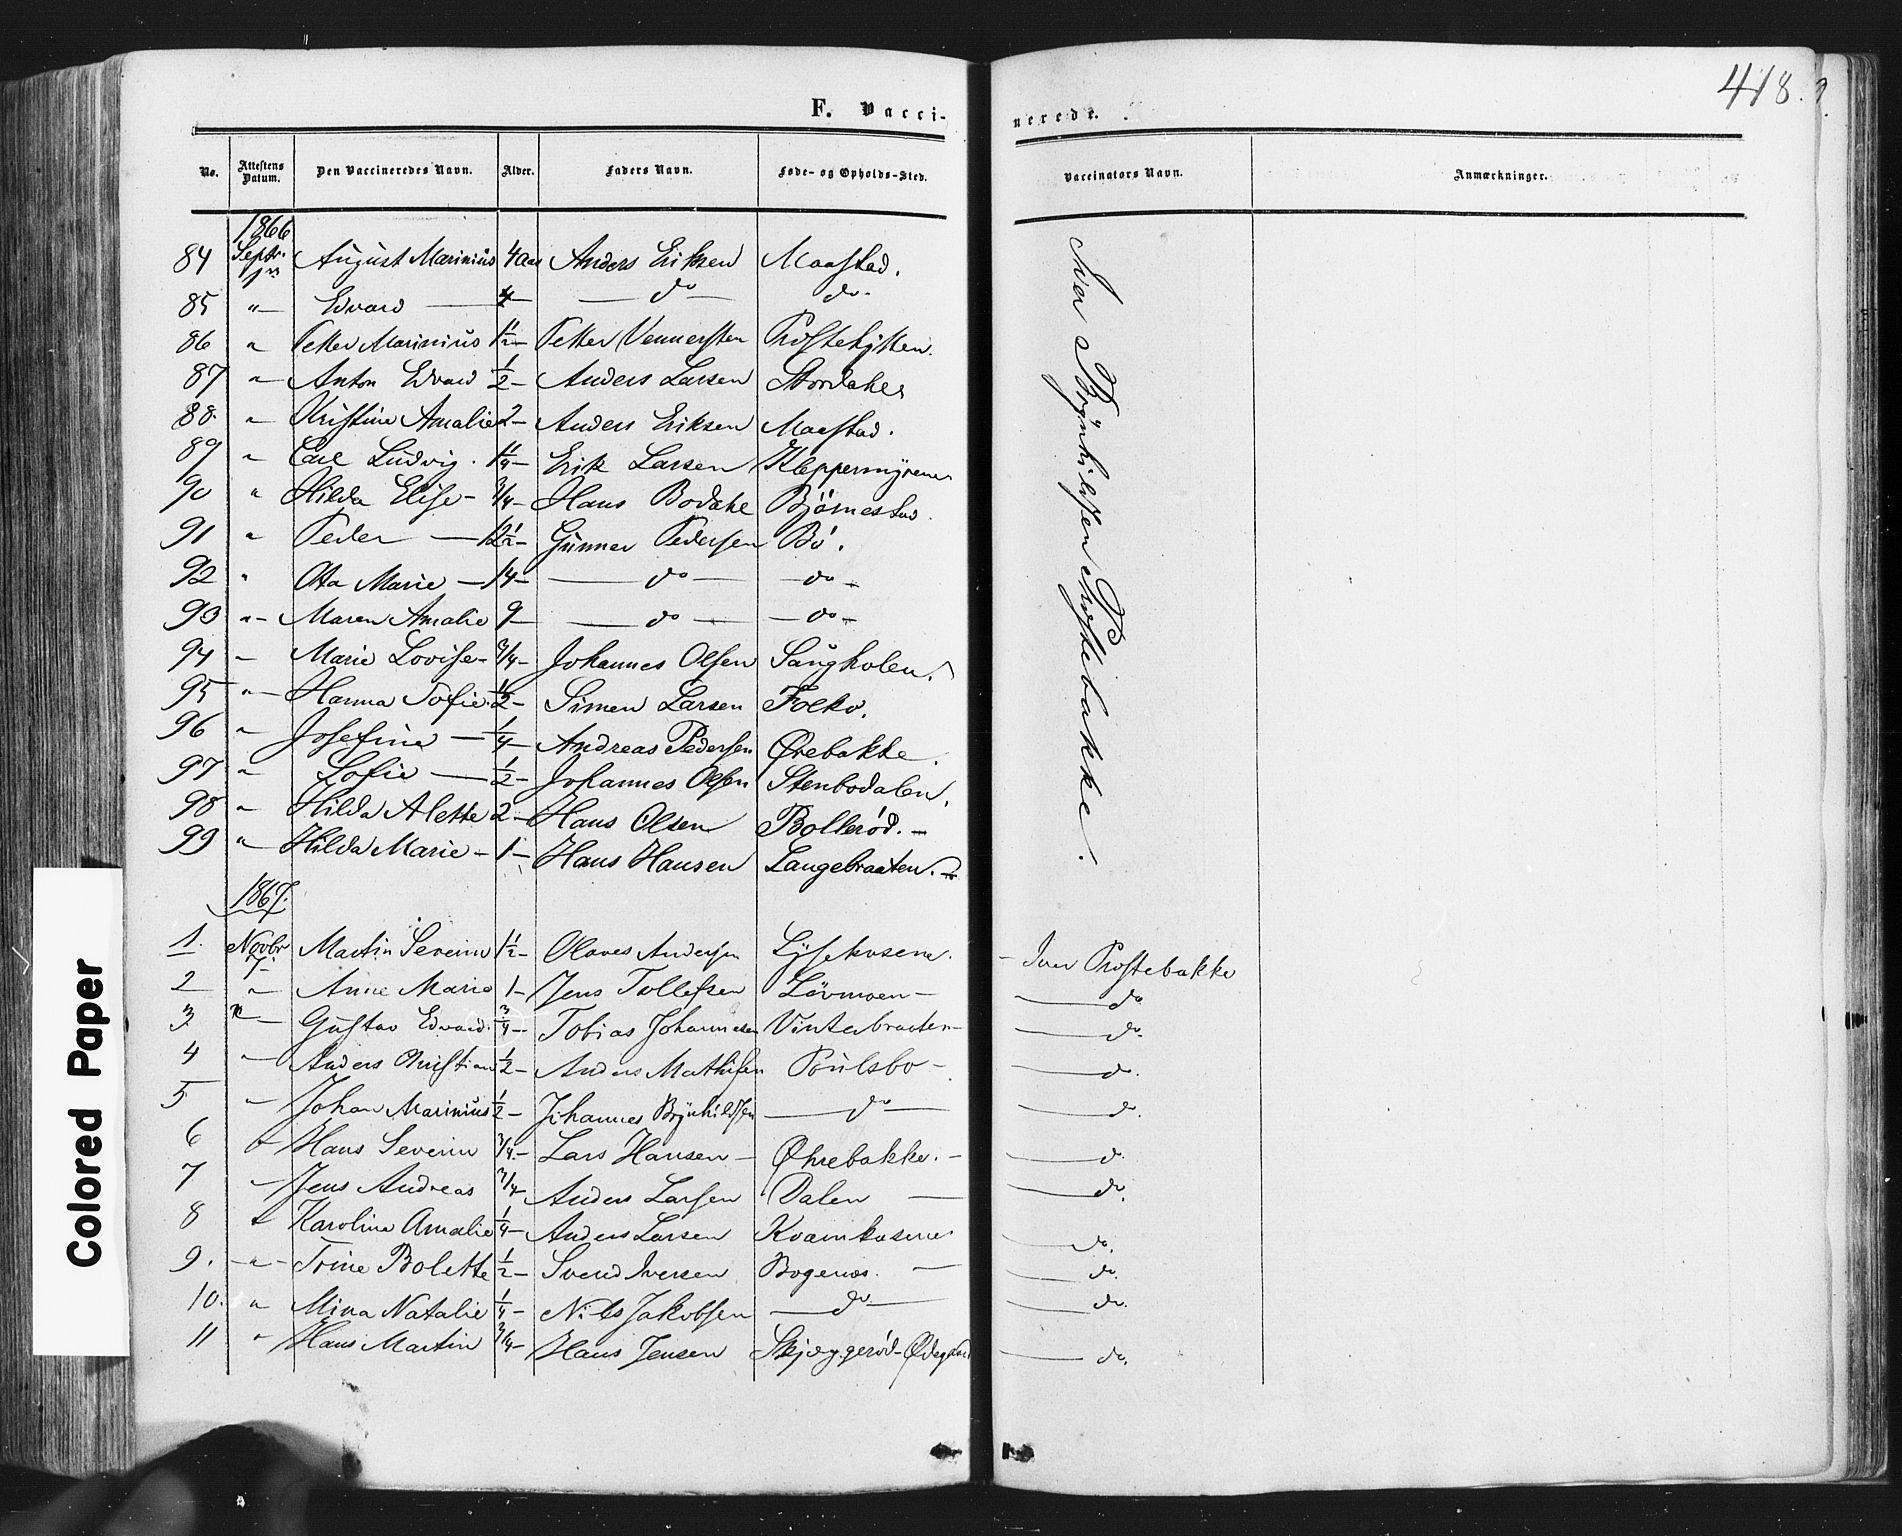 418.
F. Vacci-
nerede.
No. Attestens Datum. Den Vaccineredes Navn. Alder. Faders Navn. Føde- og Opholds-Sted. Vaccinators Navn. Anmærkninger.
1866
84 Septr. August Marinius 4 Aar Anders Eriksen Maastad.
85 " Edvard — 4 — do — do.
86 " Petter Marinius 1½ Petter Vennersten Prestehytten.
87 " Anton Edvard ½ - Anders Larsen Stordake
88. " Kristine Amalie 2 - Anders Eriksen Maastad.
89 " Carl Ludvig. 1¼ - Erik Larsen Kleppermyrene
90 " Hilda Elise - 3/4 - Hans Bodahl Bjørnestad
91 " Peder — 12½ - Gunner Pedersen Bø.
92 " Ota Marie — 14 - — do — — do -
93 " Maren Amalie 9 — do — — do -
94 - Marie Lovise - 3/4 - Johannes Olsen Saugkolen.
95 " Hanna Sofie. ½ - Simen Larsen Folko.
96 " Josefine — ¼ - Andreas Pedersen Ørebakke.
97 " Sofie — ½ - Johannes Olsen Stenbodalen.
98 " Hilda Alette 2 - Hans Olsen Bollerød. -
99 " Hilda Marie - 1 - Hans Hansen Langebraaten.
Iver Brynhildsen Prestebakke.
1867.
1. Novbr 7 - Martin Severin 1½ - Olaves Andersen Lysekasene. - Iver Prestebakke
2 " Anne Marie 1 - Jens Tollefsen Løvmoen - — do
3. " Gustav Edvard. 3/4 - Tobias Johannesen Vinterbraaten - — do.
4 " Anders Christian ½ - Anders Mathisen Poulsbo - — do.
5 " Johan Marinius ½ - Johannes Brynhildsen — do — — do.
6 " Hans Severin 3/4 - Lars Hansen - Øhrebakke. - — do
7 " Jens Andreas 3/4 Anders Larsen Dalen — — do.
8 " Karoline Amalie ¼ - Anders Larsen Kvamkasene — do.
9. - " - Trine Bolette ½ - Svend Iversen Bogenæs. — — do.
10. " Mina Natalie ¼ - Nils Jakobsen — do — — do.
11 " Hans Martin 3/4 - Hans Jensen Skjæggerød-Ødegaard — do.
Colored Paper